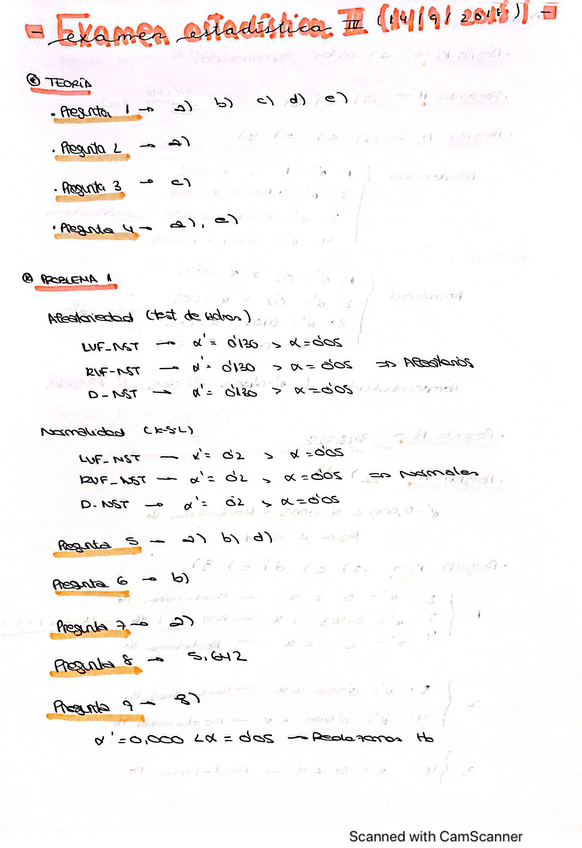 - Examen estadística III (14/9/2018) -
TEORÍA
· Pregunta 1 → a) b) c) d) e)
· Pregunta 2 → a)
· Pregunta 3 → c)
· Pregunta 4 → a), e)
PROBLEMA 1
Aleatoriedad (test de
LUF_NST → α' = 0'130 > α = 0'05
RUF-NST → α' = 0'130 > α = 0'05 ⇒ Aleatorios
D_NST → α' = 0'130 > α = 0'05
Normalidad (K-S-L)
LUF_NST → α' = 0'2 > α = 0'05
RUF_NST → α' = 0'2 > α = 0'05 ⇒ Normales
D_NST → α' = 0'2 > α = 0'05
Pregunta 5 → a) b) d)
Pregunta 6 → b)
Pregunta 7 → a)
Pregunta 8 → 5,642
Pregunta 9 → 8)
α' = 0,000 < α = 0'05 → Rechazamos Ho
Scanned with CamScanner